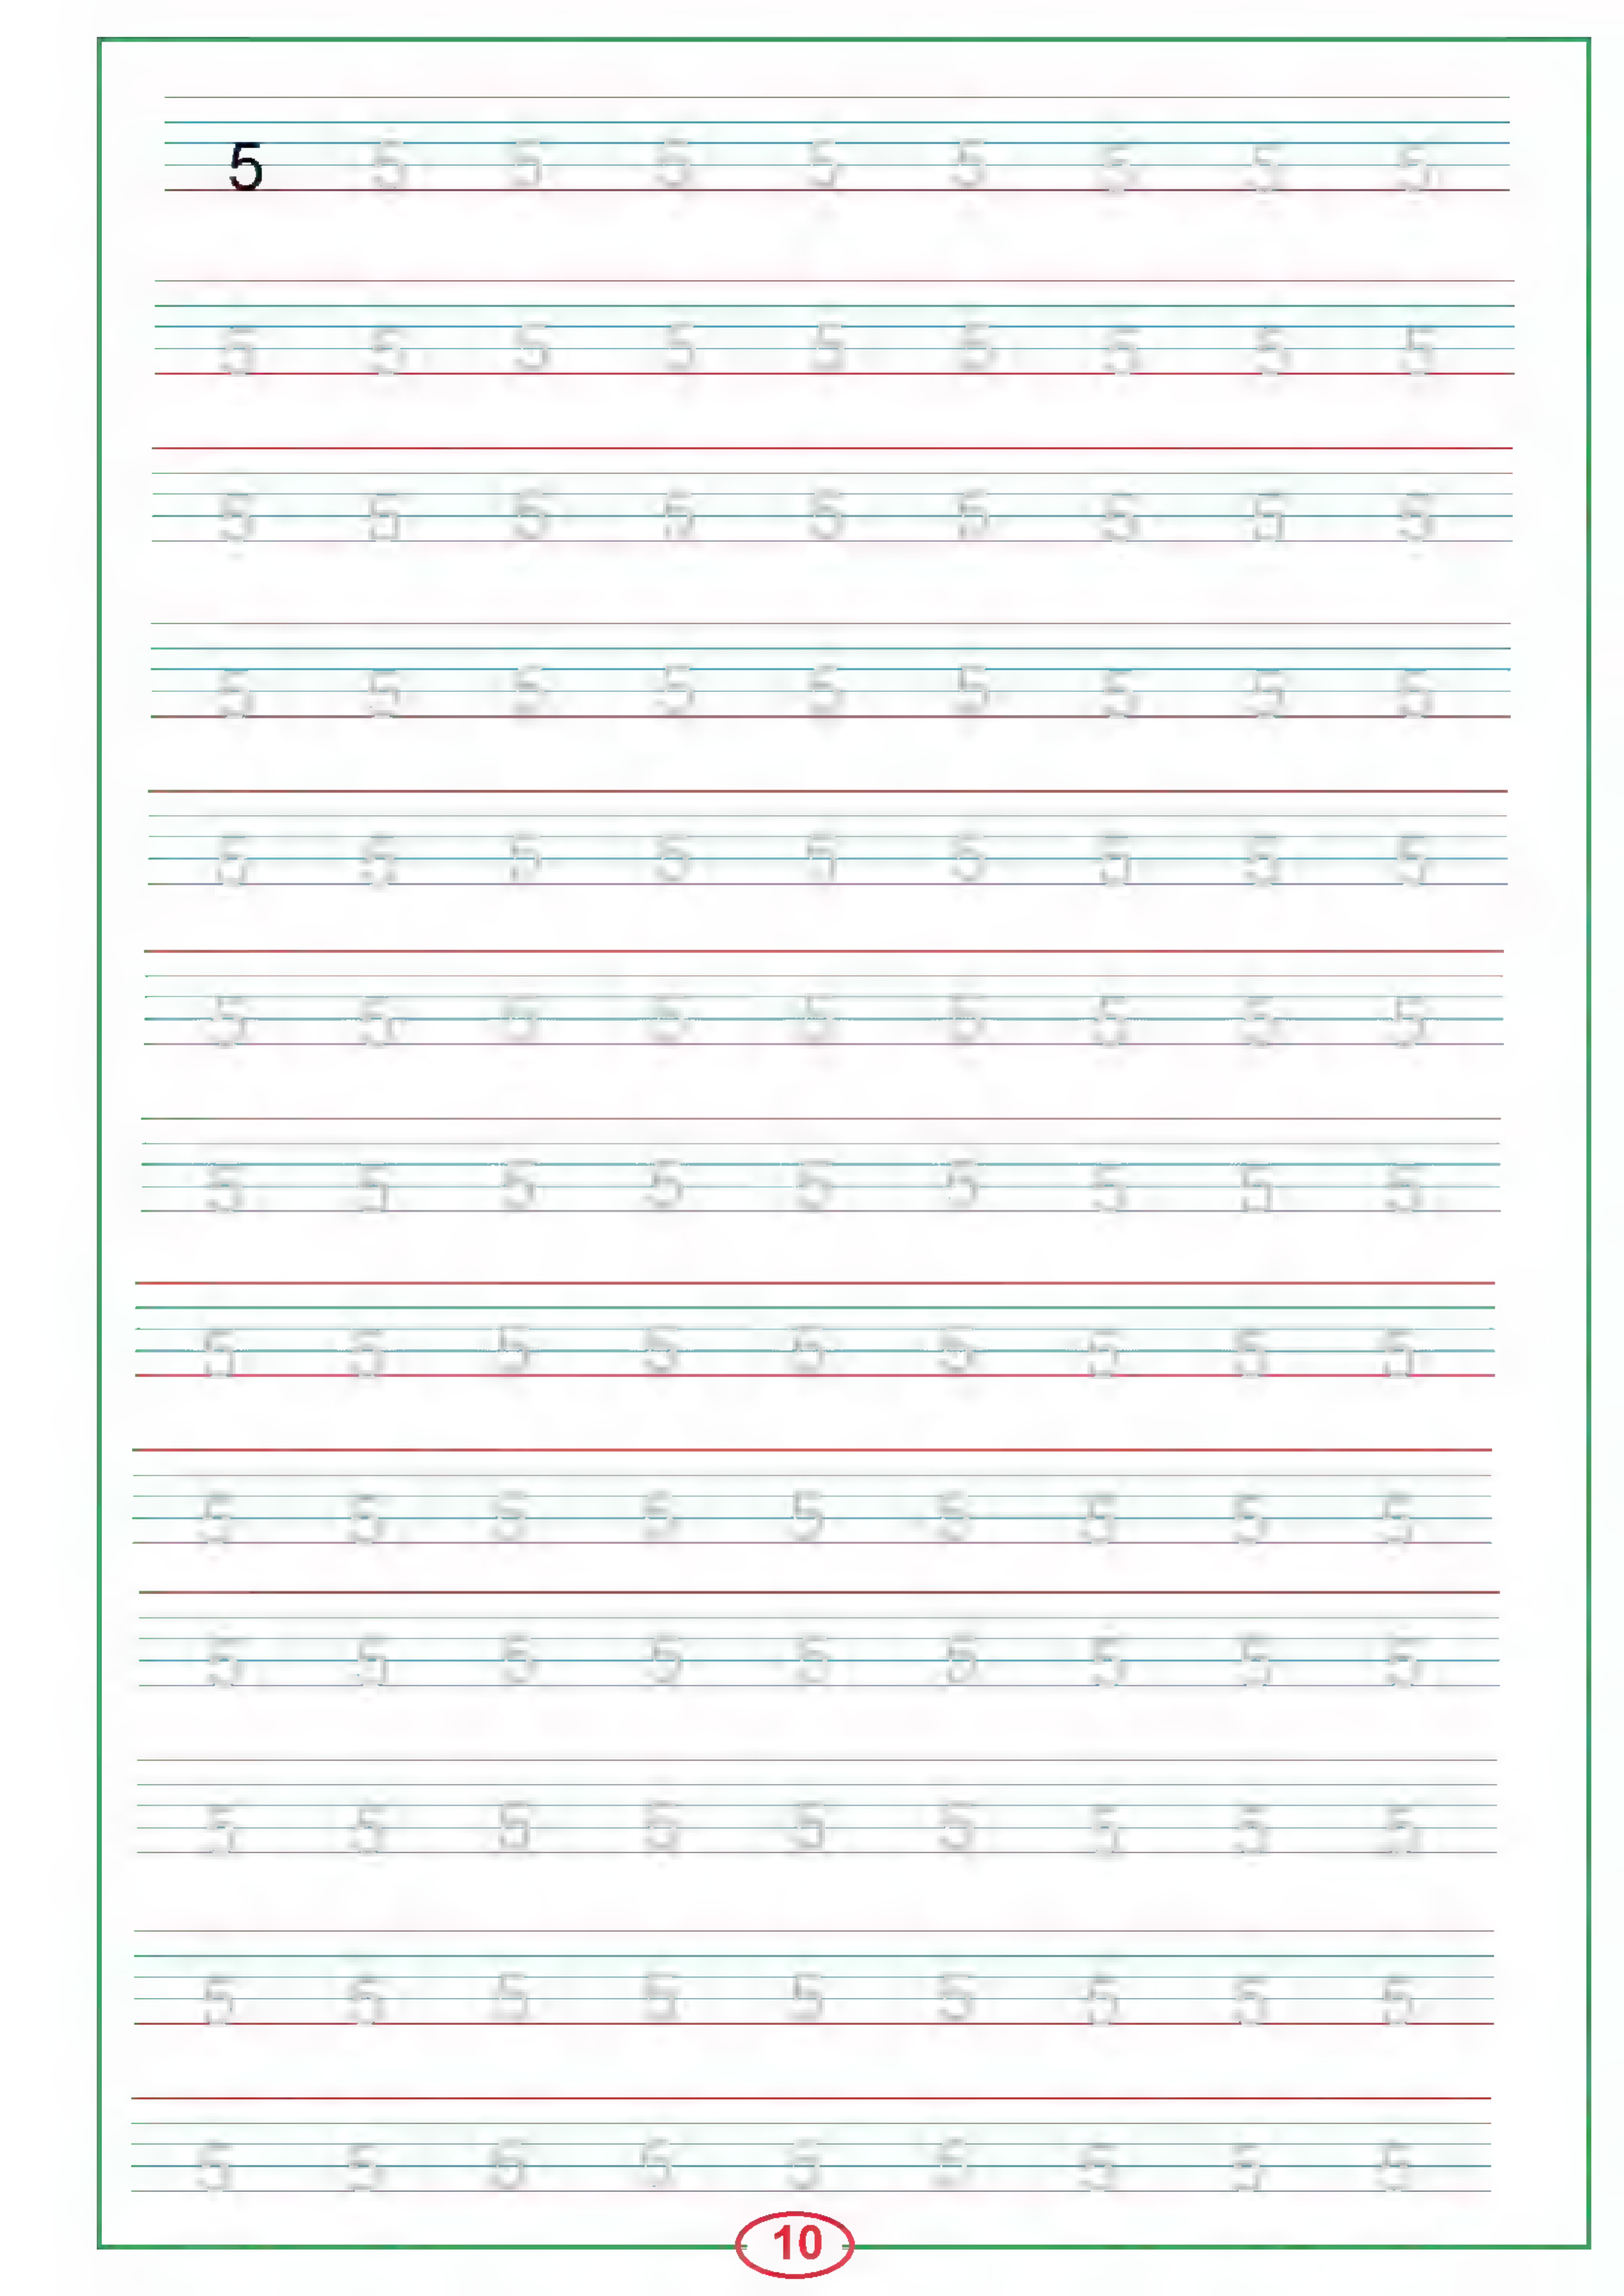 5 5 5 5 5 5 5 5 5
5 5 5 5 5 5 5 5 5
5 5 5 5 5 5 5 5 5
5 5 5 5 5 5 5 5 5
5 5 5 5 5 5 5 5 5
5 5 5 5 5 5 5 5 5
5 5 5 5 5 5 5 5 5
5 5 5 5 5 5 5 5 5
5 5 5 5 5 5 5 5 5
5 5 5 5 5 5 5 5 5
5 5 5 5 5 5 5 5 5
5 5 5 5 5 5 5 5 5
5 5 5 5 5 5 5 5 5
10